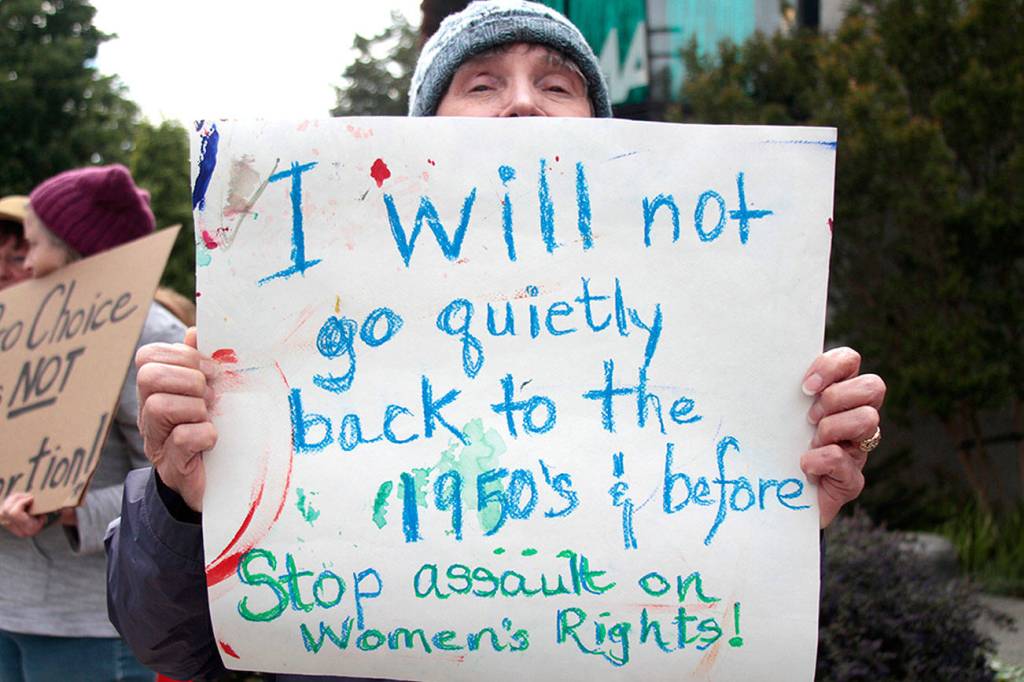 I will not
go quietly
back to the
1950's & before
Stop assault on
Women's Rights!
Choice
NOT